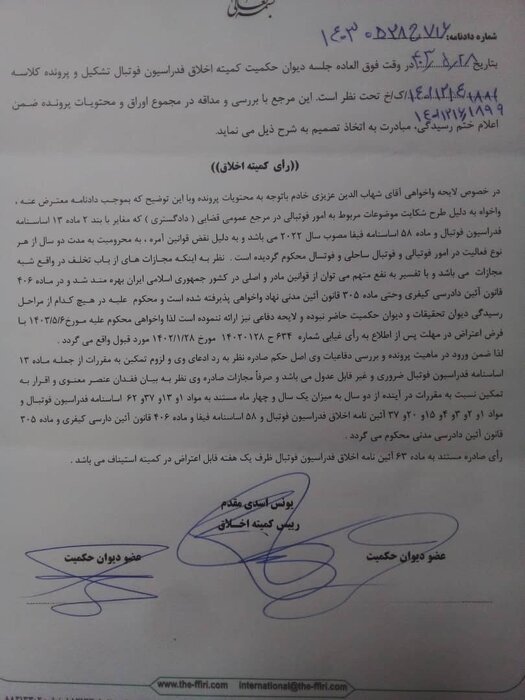 شماره دادنامه:
بتاریخ ۴۰۳/۵/۲۸ در وقت فوق العاده جلسه دیوان حکمیت کمیته اخلاق فدراسیون فوتبال تشکیل و پرونده کلاسه
ک/خ تحت نظر است. این مرجع با بررسی و مداقه در مجموع اوراق و محتویات پرونده ضمن
اعلام ختم رسیدگی، مبادرت به اتخاذ تصمیم به شرح ذیل می نماید.
((رأی کمیته اخلاق))
در خصوص لایحه واخواهی آقای شهاب الدین عزیزی خادم باتوجه به محتویات پرونده وبا این توضیح که بموجب دادنامه معترض عنه ،
واخواه به دلیل طرح شکایت موضوعات مربوط به امور فوتبالی در مرجع عمومی قضایی (دادگستری) که مغایر با بند ۲ ماده ۱۳ اساسنامه
فدراسیون فوتبال و ماده ۵۸ اساسنامه فیفا مصوب سال ۲۰۲۲ می باشد و به دلیل نقض قوانین آمره ، به محرومیت به مدت دو سال از هر
نوع فعالیت در امور فوتبالی و فوتبال ساحلی و فوتسال محکوم گردیده است . نظر به اینکه مجازات های از باب تخلف در واقع شبه
مجازات می باشد و با تفسیر به نفع متهم می توان از قوانین مادر و اصلی در کشور جمهوری اسلامی ایران بهره مند شد و در ماده ۴۰۶
قانون آئین دادرسی کیفری وحتی ماده ۳۰۵ قانون آئین مدنی نهاد واخواهی پذیرفته شده است و محکوم علیه در هیچ کدام از مراحل
رسیدگی دیوان تحقیقات و دیوان حکمیت حاضر نبوده و لایحه دفاعی نیز ارائه ننموده است لذا واخواهی محکوم علیه مورخ۱۴۰۳/۵/۶
فرض اعتراض در مهلت پس از اطلاع به رأی غیابی شماره ۶۳۴ ح ۱۴۰۲۰۱۲۸ مورخ ۱۴۰۲/۱/۲۸ مورد قبول واقع می گردد .
لذا ضمن ورود در ماهیت پرونده و بررسی دفاعیات وی اصل حکم صادره نظر به رد ادعای وی و لزوم تمکین به مقررات از جمله ماده ۱۳
اساسنامه فدراسیون فوتبال ضروری و غیر قابل عدول می باشد و صرفاً مجازات صادره وی نظر به بیان فقدان عنصر معنوی و اقرار به
تمکین نسبت به مقررات در آینده از دو سال به میزان یک سال و چهار ماه مستند به مواد ۱و ۱۳و ۳۷و ۶۲ اساسنامه فدراسیون فوتبال و
مواد ۱و ۲و ۳و ۴و ۱۵و ۲۰و ۳۷ آئین نامه اخلاق فدراسیون فوتبال و ۵۸ اساسنامه فیفا و ماده ۴۰۶ قانون آئین دادرسی کیفری و ماده ۳۰۵
قانون آئین دادرسی مدنی محکوم می گردد .
رأی صادره مستند به ماده ۶۳ آئین نامه اخلاق فدراسیون فوتبال ظرف یک هفته قابل اعتراض در کمیته استیناف می باشد .
یونس اسدی مقدم
رییس کمیته اخلاق
عضو دیوان حکمیت
عضو دیوان حکمیت
www.the-ffiri.com international@the-ffiri.com